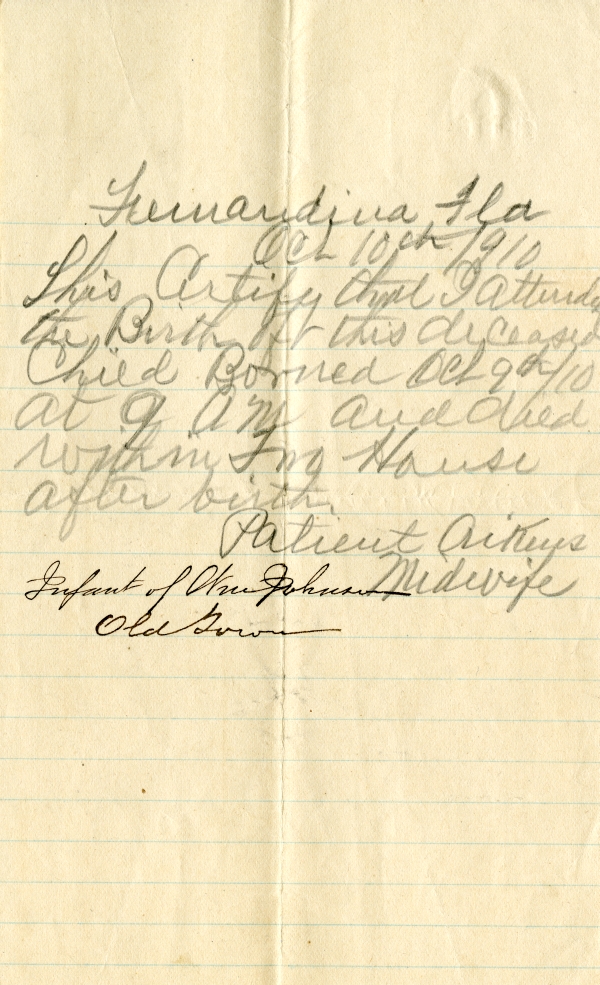 Fernandina Fla
Oct 10th 1910
This Certify that I attended
the Birth off this deceased
Child Borned Oct 9th/10
at 9 AM and died
within Two House
after birth.
Patient Aikens
Midwife
Infant of Wm Johnson
Old Town